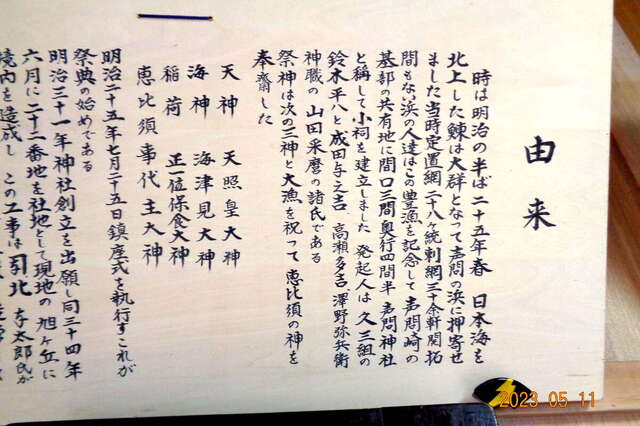 由来
時は明治の半ば二十五年春 日本海を
北上した鰊は大群となって声問の浜に押寄せ
ました当時定置網二十八ヶ統刺網三十余軒開拓
間もない浜の人達はこの豊漁を記念して声問崎の
基部の共有地に間口三間奥行四間半 声問神社
と称して小祠を建立しました 発起人は 久三組の
鈴木平八と成田与之吉 高瀬多吉 澤野弥兵衛
神職の 山田采麿の諸氏である
祭神は次の三神と大漁を祝って 恵比須の神を
奉齋した
天神 天照皇大神
海神 海津見大神
稲荷 正一位保食大神
恵比須 事代主大神
明治二十五年七月二十五日鎮座式を執行すこれが
祭典の始めである
明治三十一年神社創立を出願し同三十四年
六月に二十二番地を社地として現地の 旭ヶ丘に
境内を造成し この工事は 引北 与太郎氏が
2023 05 11